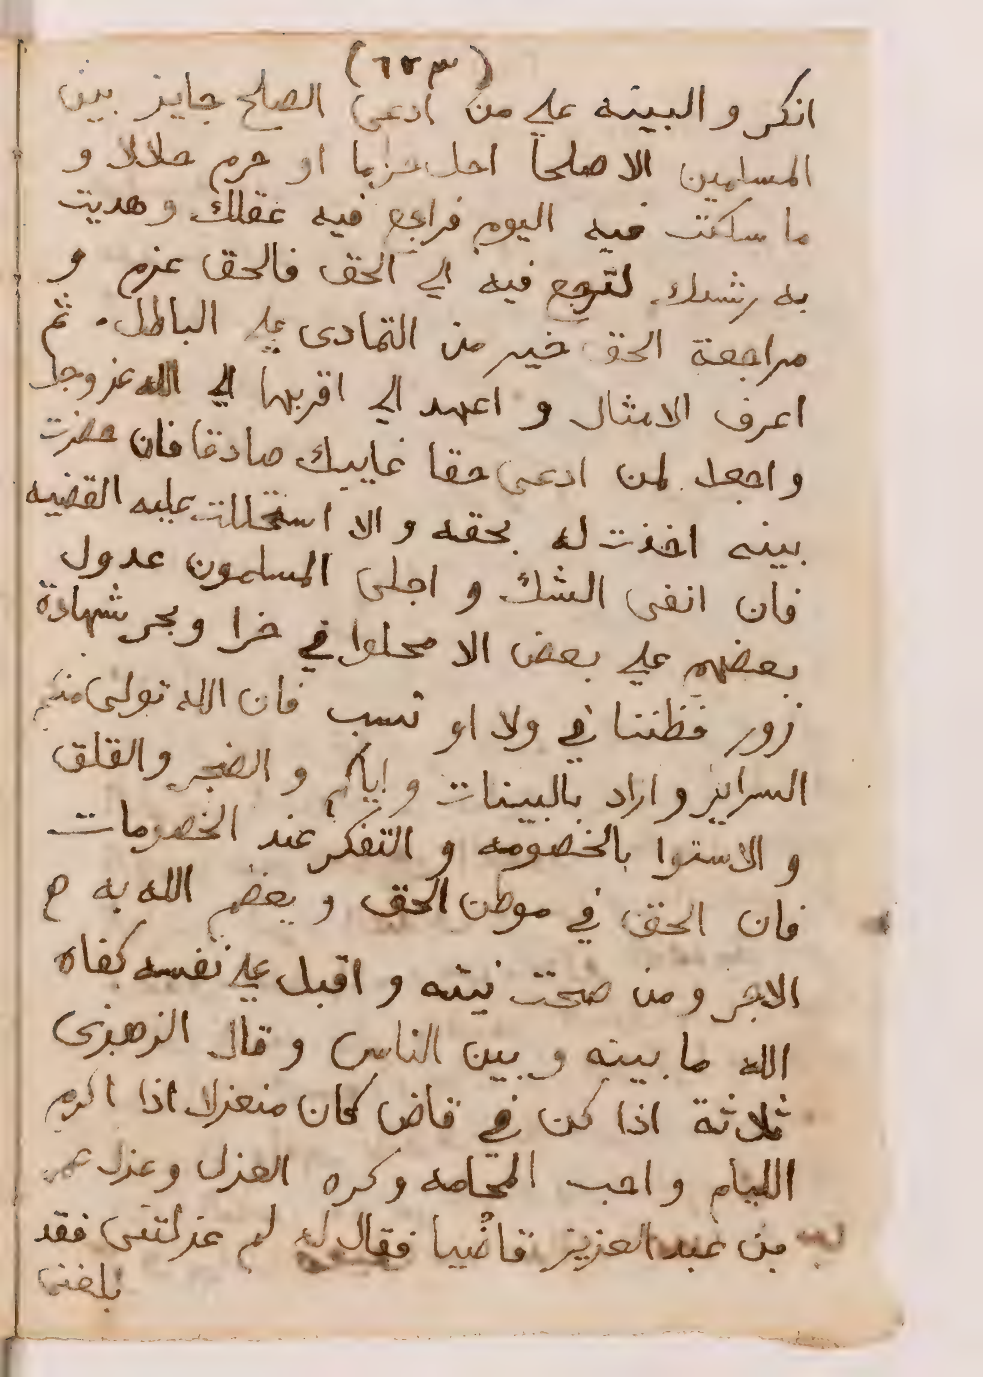 (٦٢٣)
انكر و البينه علي من ادعى الصلح جايز بين
المسلمين الا صلحا احل حراما او حرم حلالا و
ما سكت فيه اليوم فراجع فيه عقلك وهديت
به رشدك لترجع فيه الي الحق فالحق عزم و
مراجعة الحق خير من التمادى علي الباطل. ثم
اعرف الامثال و اعهد الي اقربها الي الله عز وجل
واجعل لمن ادعى حقا غايبك صادقا فان حضرت
بينه اخذت له بحقه و الا استحللت عليه القضيه
فان انفى الشك و اجلى المسلمون عدول
بعضهم علي بعض الا محلوا في خرا وبجر شهادة
زور فظننا في ولا او نسب فان الله تولى منكم
السراير و اراد بالبينات و اياكم و الضجر والقلق
و الاستوا بالخصومه و التفكر عند الخصومات
فان الحق في موطن الحق و يغضم الله به ح
الاجر و من صحت نيته و اقبل علي نفسه كفاه
الله ما بينه و بين الناس و قال الزهرى
ثلاثة اذا كن في قاض كان منعزلا اذا اكرم
الليام و احب المحامه وكره العزل وعزل عمر
بن عبد العزيز قاضيا فقال له لم عزلتنى فقد
بلغنى